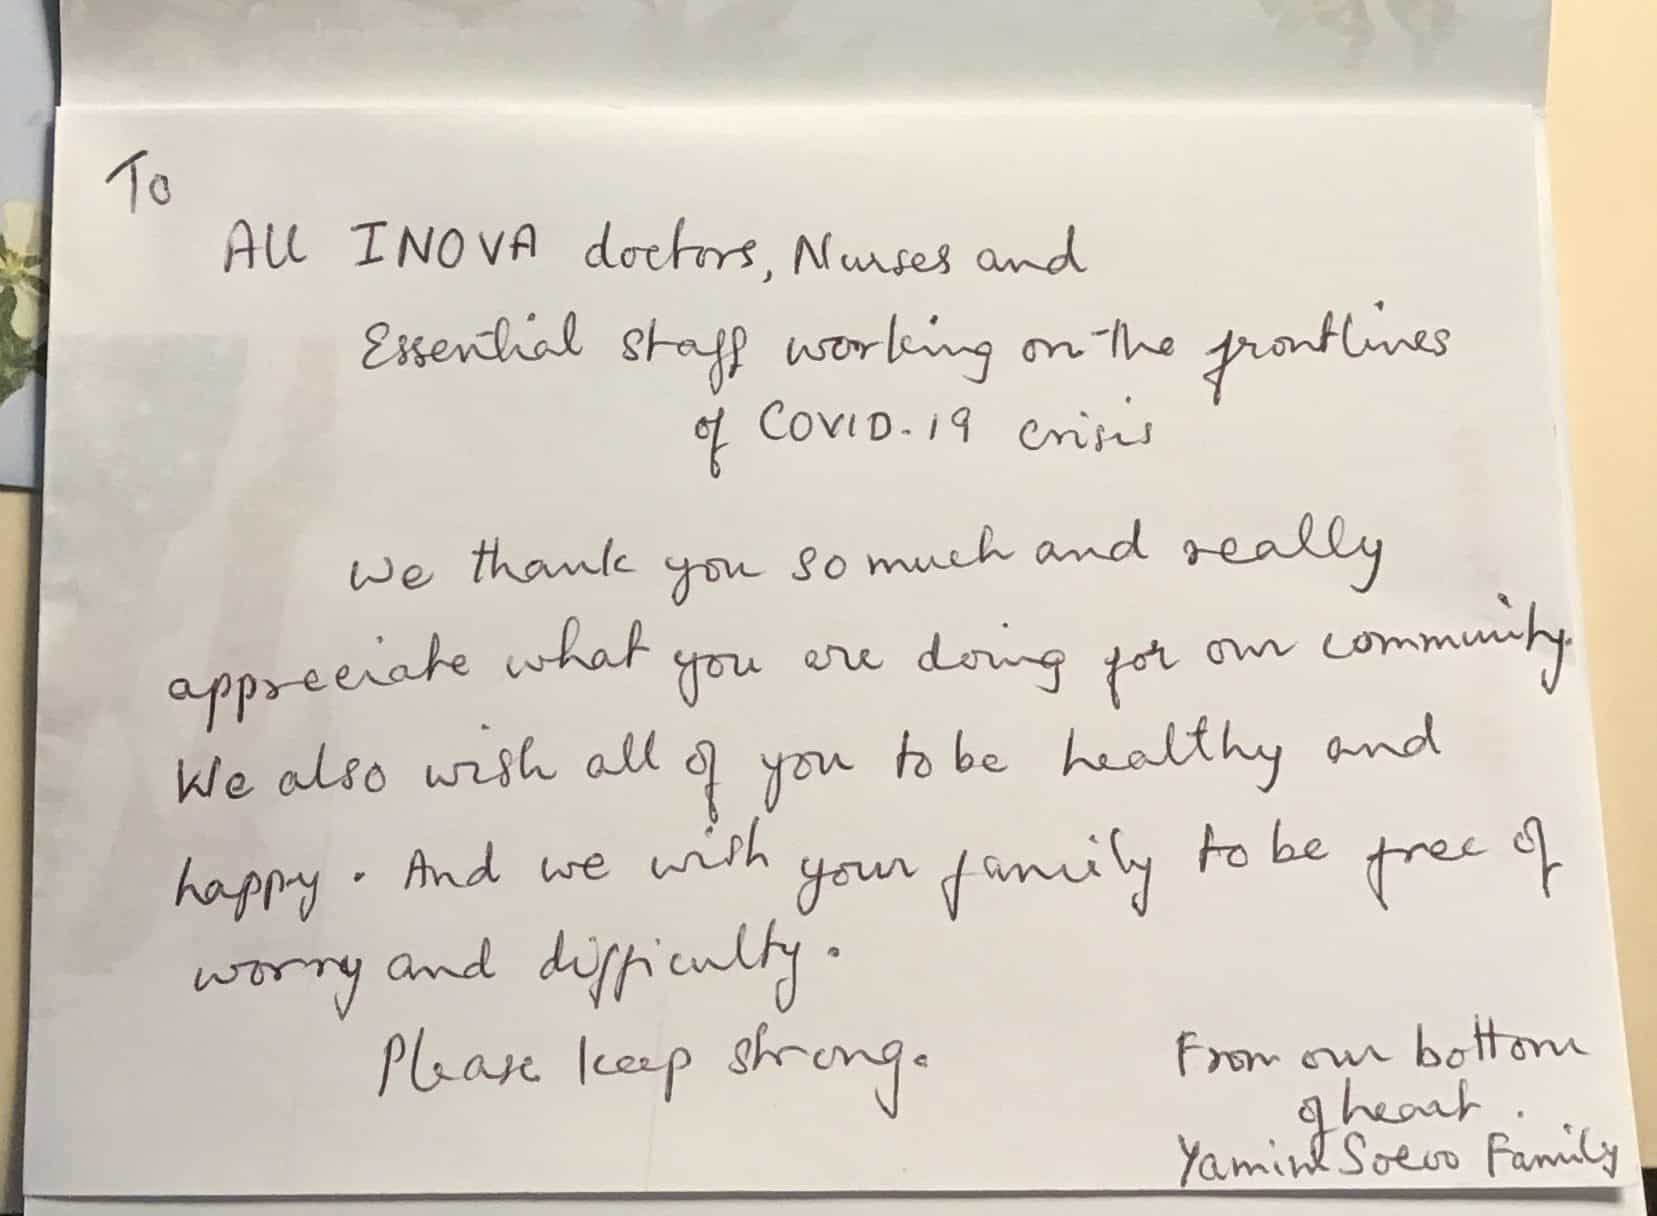 To
All INOVA doctors, Nurses and
Essential staff working on the frontlines
of COVID-19 crisis
We thank you so much and really
appreciate what you are doing for our community.
We also wish all of you to be healthy and
happy. And we wish your family to be free of
worry and difficulty.
Please keep strong.
From our bottom
of heart.
Family